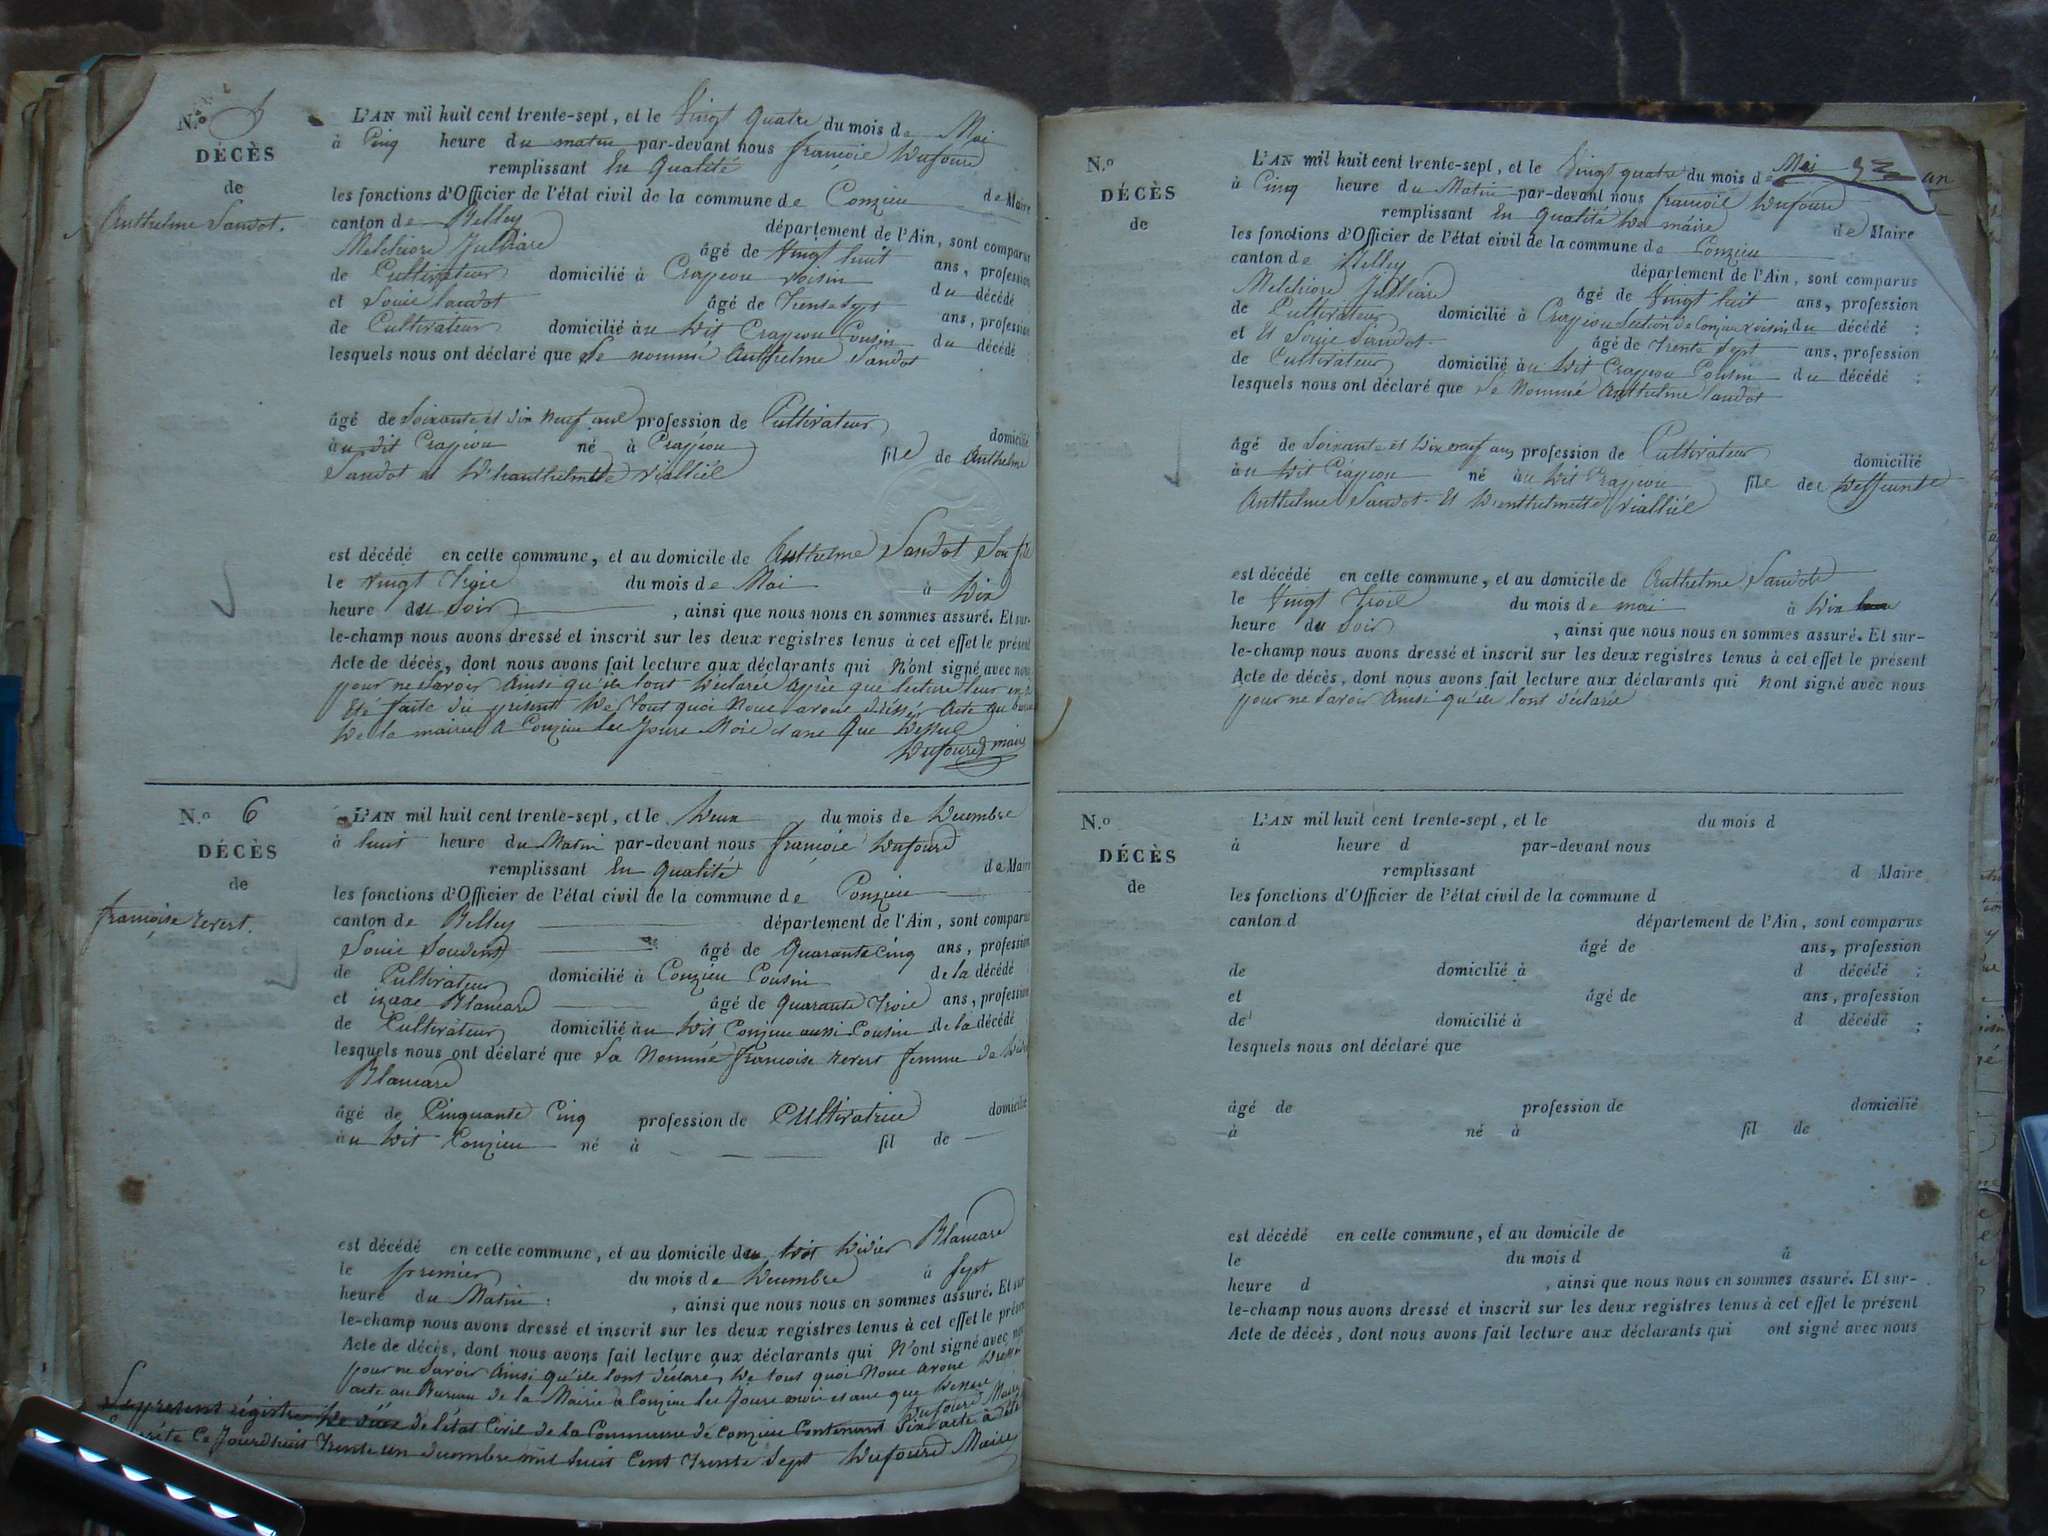 N.º 5
DÉCÈS
de
Anthelme Sandot.
L'AN mil huit cent trente-sept, et le Vingt quatre du mois de Mai
à Cinq heure du matin par-devant nous françois Dufour
remplissant En Qualité de Maire
les fonctions d'Officier de l'état civil de la commune de Conzieu
canton de Belley département de l'Ain, sont comparus
Melchiore Julliare âgé de Vingt huit ans, profession
de Cultivateur domicilié à Crapeou voisin du décédé ;
et Louis Sandot âgé de Trente Sept ans, profession
de Cultivateur domicilié àu dit Crapeou Cousin du décédé ;
lesquels nous ont déclaré que Le nommé Anthelme Sandot
âgé de Soixante et dix neuf ans profession de Cultivateur domicilié
àu dit Crapeou né à Crapeou fils de Anthelme
Sandot et D'hanthelmette
est décédé en cette commune, et au domicile de Anthelme Sandot Son fils
le vingt Trois du mois de Mai à Dix
heure du Soir , ainsi que nous nous en sommes assuré. Et sur-
le-champ nous avons dressé et inscrit sur les deux registres tenus à cet effet le présent
Acte de décès, dont nous avons fait lecture aux déclarants qui N'ont signé avec nous
pour ne Savoir Ainsi qu'ils lont Déclaré Après que lecture leur en a
Eté faite du présent De Tout quoi Nous avons dressé Acte au
De la mairie A Conzieu les Jours Mois et ans Que Dessus
Dufour maire
N.º 6
DÉCÈS
de
françoise revert.
L'AN mil huit cent trente-sept, et le Deux du mois de Decembre
à huit heure du Matin par-devant nous françois Dufour
remplissant En Qualité de Maire
les fonctions d'Officier de l'état civil de la commune de Conzieu
canton de Belley département de l'Ain, sont comparus
Louis Soudent âgé de Quarante cinq ans, profession
de Cultivateur domicilié à Conzieu Cousin de la décédé
et izaac Blancard âgé de Quarante Trois ans, profession
de Cultivateur domicilié àu Dit Conzieu aussi Cousin de la décédé
lesquels nous ont déclaré que La Nommé françoise revert femme de
Blancard
âgé de Cinquante Cinq profession de Cultivatrice domicilié
àu Dit Conzieu né à fil de
est décédé en cette commune, et au domicile du Dit Didier Blancard
le premier du mois de Decembre à Sept
heure du Matin , ainsi que nous nous en sommes assuré. Et sur-
le-champ nous avons dressé et inscrit sur les deux registres tenus à cet effet le présent
Acte de décès, dont nous avons fait lecture aux déclarants qui N'ont signé avec nous
pour ne Savoir Ainsi qu'ils lont déclaré, De tout quoi Nous avons Dressé
acte au Bureau de la Mairie à Conzieu les Jours mois et ans que Dessus
Dufour Maire
Le present régistre De décès de l'état Civil de la Commune de Conzieu Contenant Six acte à été
Ce Jourdhuit Trente un decembre mil huit Cent Trente Sept Dufour Maire
N.º
DÉCÈS
de
L'AN mil huit cent trente-sept, et le Vingt quatre du mois de Mai
à Cinq heure du Matin par-devant nous françois Dufour
remplissant En Qualité De maire de Maire
les fonctions d'Officier de l'état civil de la commune de Conzieu
canton de Belley département de l'Ain, sont comparus
Melchiore Julliare âgé de Vingt huit ans, profession
de Cultivateur domicilié à Crapeou Section de Conzieu voisin du décédé ;
et Et Louis Sandot âgé de Trente Sept ans, profession
de Cultivateur domicilié àu Dit Crapeou Cousin du décédé ;
lesquels nous ont déclaré que Le Nommé Anthelme Sandot
âgé de Soixante et Dix neuf ans profession de Cultivateur domicilié
àu Dit Crapeou né àu Dit Crapeou fils de Deffunt
Anthelme Sandot Et D'enthelmette
est décédé en cette commune, et au domicile de Anthelme Sandot
le Vingt Trois du mois de mai à Dix
heure du Soir , ainsi que nous nous en sommes assuré. Et sur-
le-champ nous avons dressé et inscrit sur les deux registres tenus à cet effet le présent
Acte de décès, dont nous avons fait lecture aux déclarants qui Nont signé avec nous
pour ne Savoir Ainsi qu'ils lont déclaré
N.º
DÉCÈS
de
L'AN mil huit cent trente-sept, et le du mois d
à heure d par-devant nous
remplissant d Maire
les fonctions d'Officier de l'état civil de la commune d
canton d département de l'Ain, sont comparus
âgé de ans, profession
de domicilié à d décédé ;
et âgé de ans, profession
de domicilié à d décédé ;
lesquels nous ont déclaré que
âgé de profession de domicilié
à né à fil de
est décédé en cette commune, et au domicile de
le du mois d à
heure d , ainsi que nous nous en sommes assuré. Et sur-
le-champ nous avons dressé et inscrit sur les deux registres tenus à cet effet le présent
Acte de décès, dont nous avons fait lecture aux déclarants qui ont signé avec nous